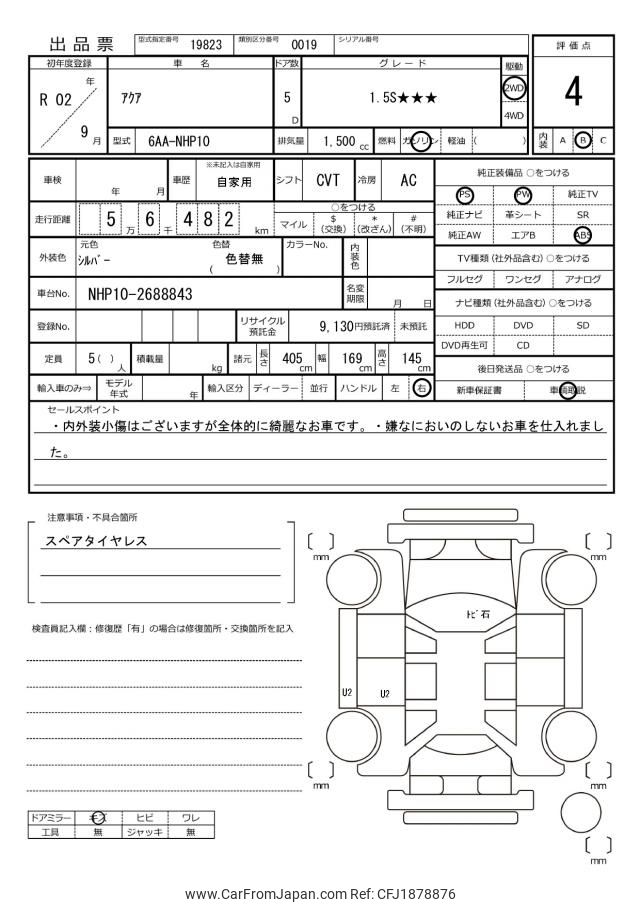 出品票 型式指定番号 19823 類別区分番号 0019 シリアル番号
評価点
4
内装 A B C
初年度登録 車名 ドア数 グレード 駆動
R 02 年 9 月
アクア 5 D 1.5S★★★ 2WD
4WD
型式 6AA-NHP10 排気量 1,500 cc 燃料 ガソリン 軽油 ( )
車検 年 月 車歴 ※未記入は自家用 自家用 シフト CVT 冷房 AC
走行距離 5 万 6 千 4 8 2 km
○をつける
マイル $ (交換) * (改ざん) # (不明)
外装色 元色 シルバー 色替 ( 色替無 ) カラーNo. 内装色
車台No. NHP10-2688843 名変期限 月 日
登録No. リサイクル預託金 9,130円預託済 未預託
定員 5( ) 人 積載量 kg 諸元 長さ 405 cm 幅 169 cm 高さ 145 cm
輸入車のみ⇒ モデル年式 年 輸入区分 ディーラー 並行 ハンドル 左 右
純正装備品 ○をつける
PS PW 純正TV
純正ナビ 革シート SR
純正AW エアB ABS
TV種類 (社外品含む) ○をつける
フルセグ ワンセグ アナログ
ナビ種類 (社外品含む) ○をつける
HDD DVD SD
DVD再生可 CD
後日発送品 ○をつける
新車保証書 車輌取説
セールスポイント
・内外装小傷はございますが全体的に綺麗なお車です。・嫌なにおいのしないお車を仕入れまし
た。
注意事項・不具合箇所
スペアタイヤレス
検査員記入欄：修復歴「有」の場合は修復箇所・交換箇所を記入
ドアミラー キズ ヒビ ワレ
工具 無 ジャッキ 無
〔 〕 mm
〔 〕 mm
トビ石
U2 U2
〔 〕 mm
〔 〕 mm
〔 〕 mm
www.CarFromJapan.com Ref: CFJ1878876